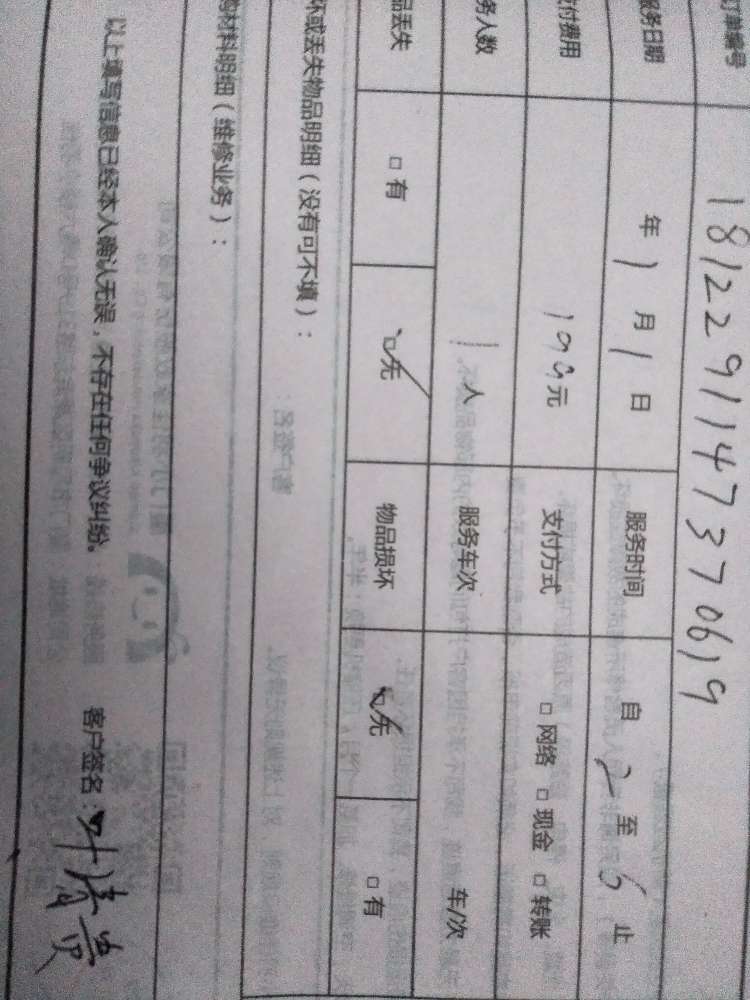 订单编号 1812291147370619
服务日期 年 1 月 1 日 服务时间 自 2 至 6 止
支付费用 199元 支付方式 □ 网络 □ 现金 □ 转账
务人数 1 人 服务车次 车/次
品丢失 □ 有 □无 物品损坏 □无 □ 有
坏或丢失物品明细（没有可不填）：
材料明细（维修业务）：
以上填写信息已经本人确认无误，不存在任何争议纠纷。 客户签名：叶清贵